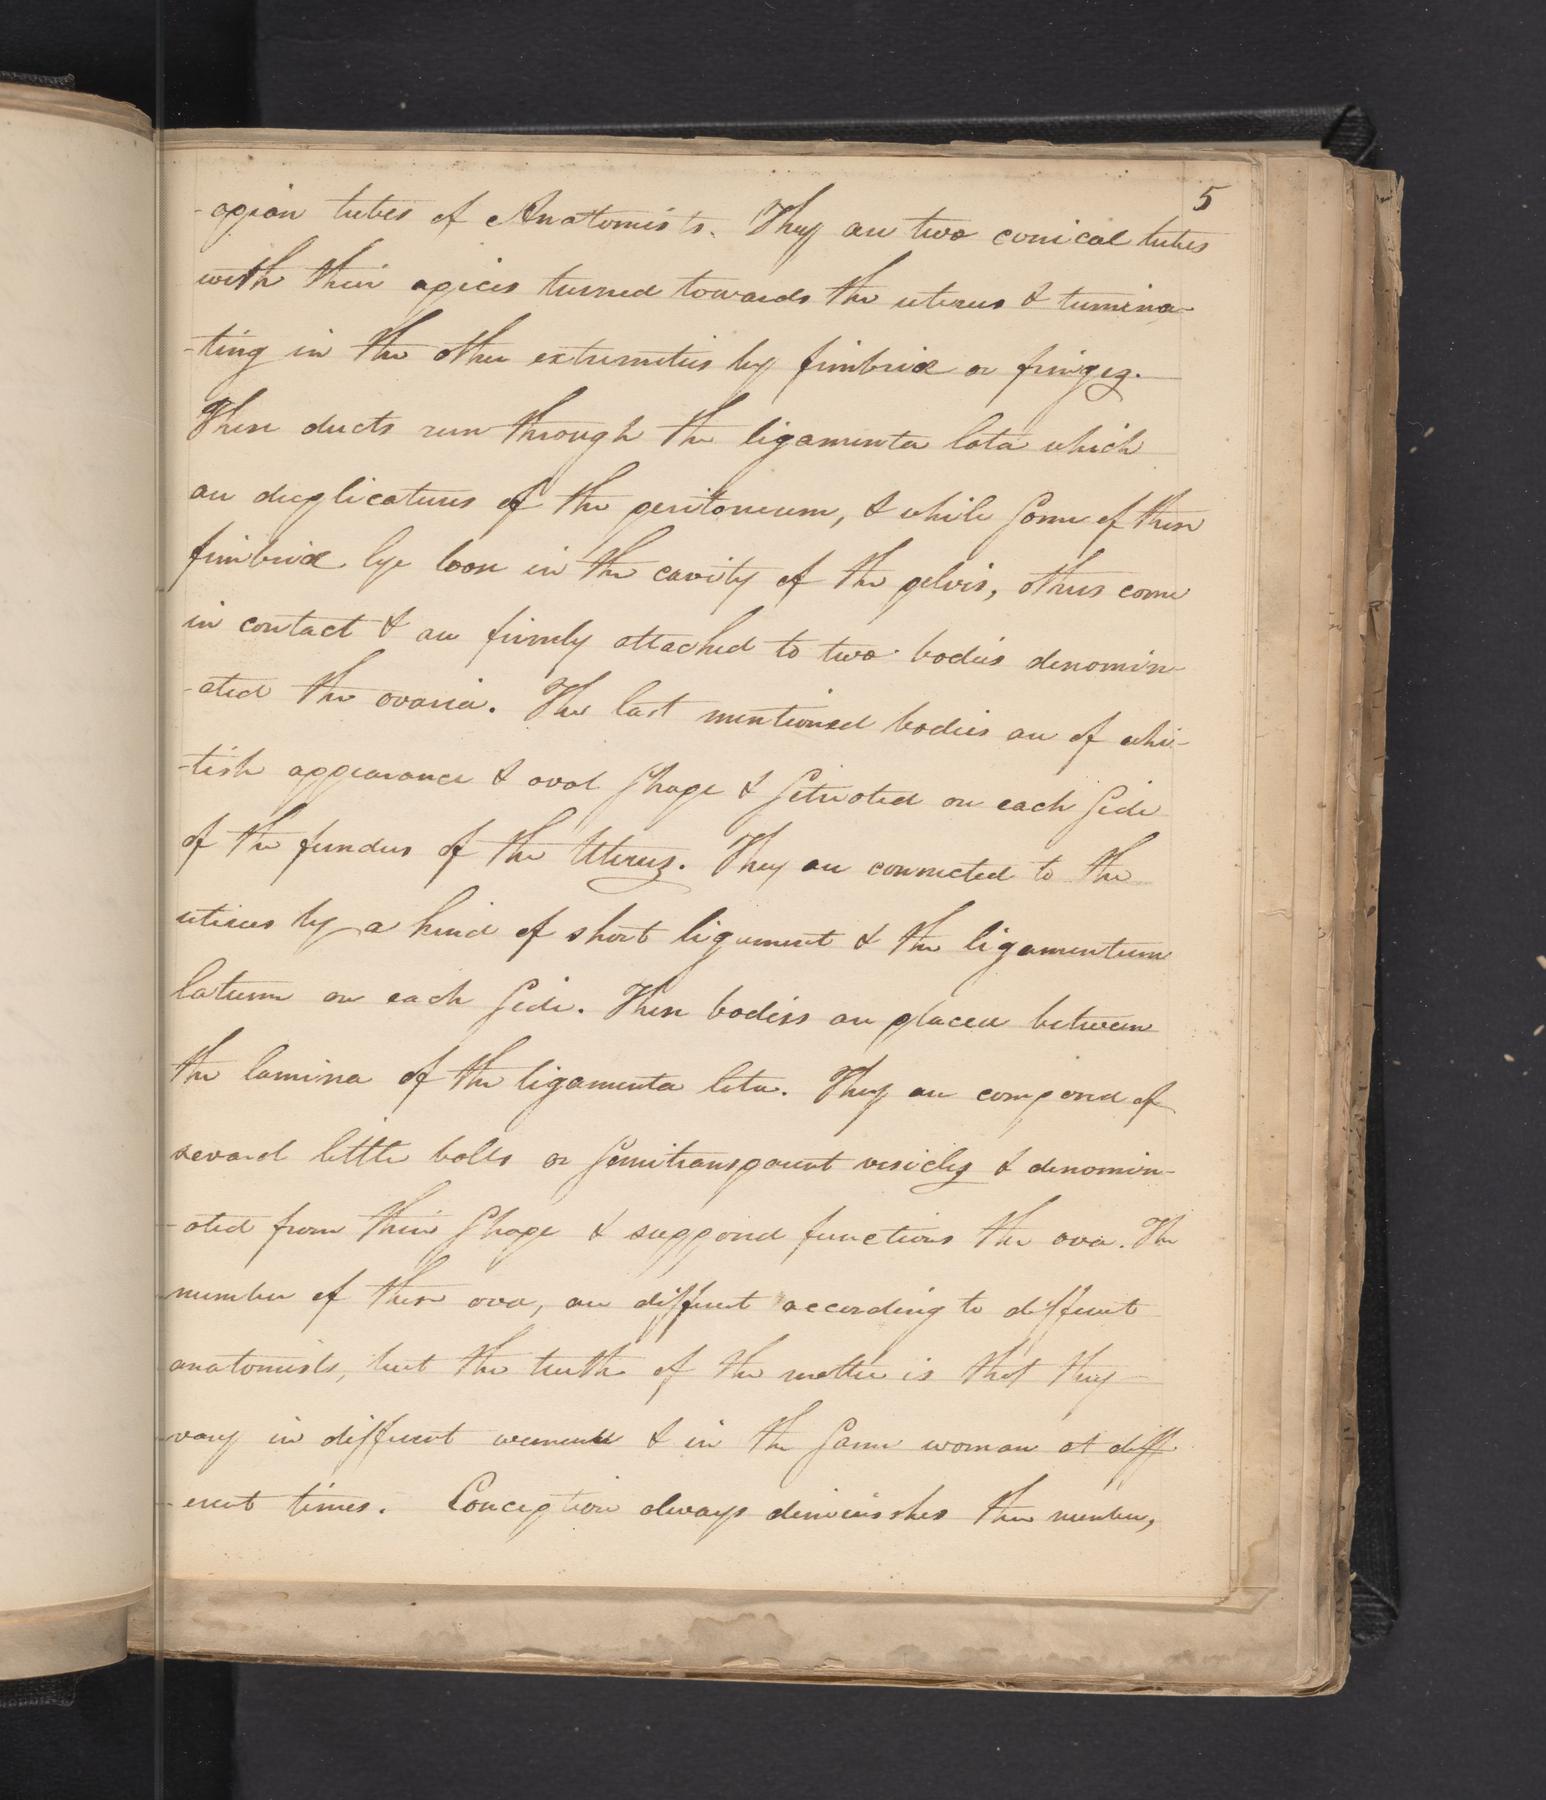 5
-opian tubes of Anatomists. They are two conical tubes
with their apices turned towards the uterus & termina-
-ting in the other extremities by fimbriæ or fringes.
These ducts run through the ligamenta lata which
are duplicatures of the peritoneum, & while some of these
fimbriæ lye loose in the cavity of the pelvis, others come
in contact & are firmly attached to two bodies denomin-
-ated the ovaria. The last mentioned bodies are of whi-
-tish appearance & oval shape & situated on each side
of the fundus of the Uterus. They are connected to the
uterus by a kind of short ligament & the ligamentum
latum on each side. These bodies are placed between
the lamina of the ligamenta lata. They are composed of
several little balls or semitransparent vesicles & denomin-
-ated from their shape & supposed functions the ova. The
number of these ova, are different according to different
anatomists, but the truth of the matter is that they
vary in different women & in the same woman at diff
-erent times. Conception always diminishes the number,